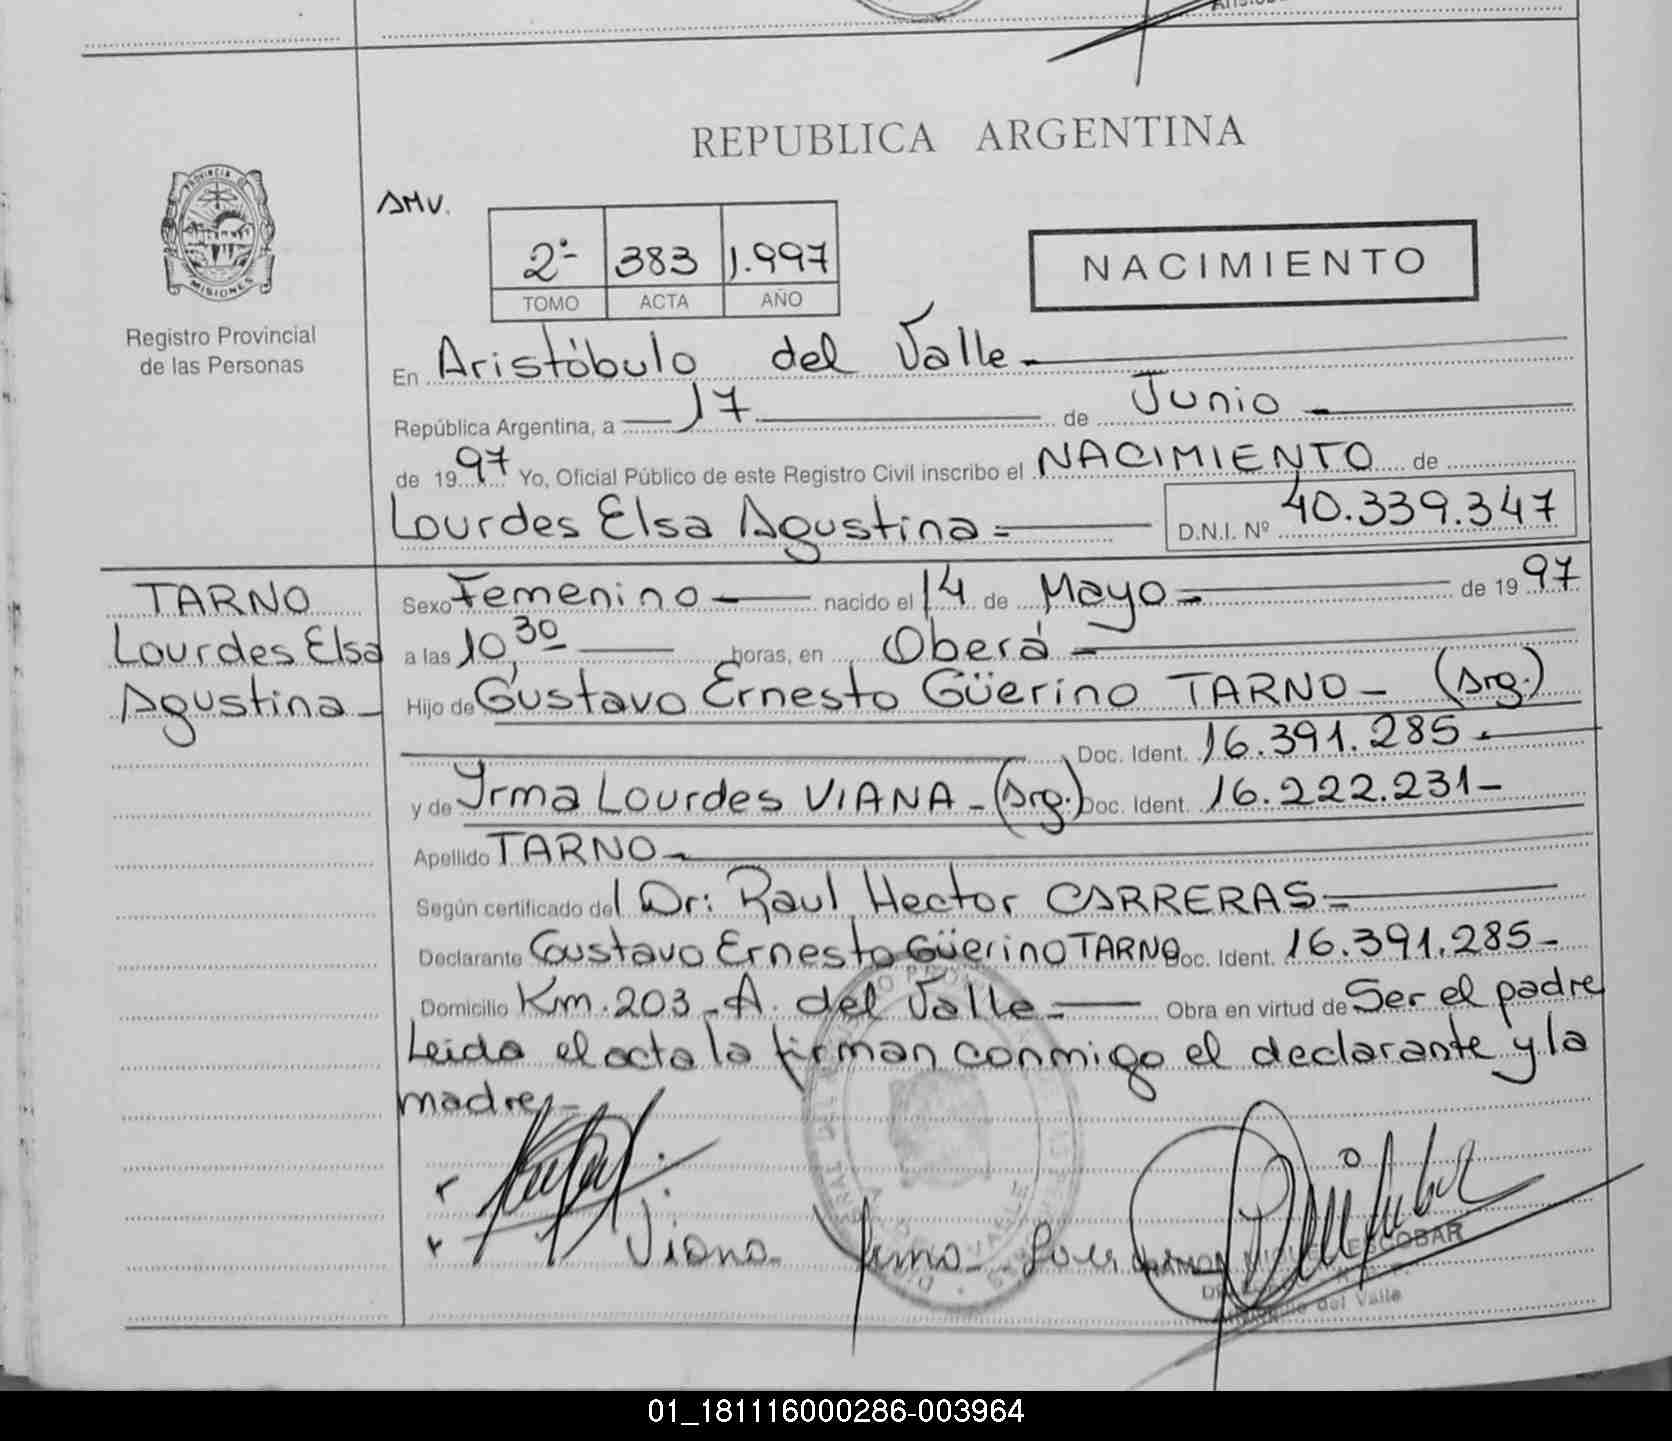 REPUBLICA ARGENTINA
PROVINCIA DE
MISIONES
Registro Provincial
de las Personas
AMV.
2º- 383 1.997
TOMO ACTA AÑO
NACIMIENTO
En Aristóbulo del Valle
República Argentina, a 17 de Junio
de 1997 Yo, Oficial Público de este Registro Civil inscribo el NACIMIENTO de
Lourdes Elsa Agustina D.N.I. Nº 40.339.347
TARNO
Lourdes Elsa
Agustina
Sexo Femenino nacido el 14 de Mayo de 1997
a las 10,30 horas, en Oberá
Hijo de Gustavo Ernesto Güerino TARNO - (Arg.)
Doc. Ident. 16.391.285
y de Yrma Lourdes VIANA - (Arg.) Doc. Ident. 16.222.231
Apellido TARNO
Según certificado del Dr: Raul Hector CARRERAS
Declarante Gustavo Ernesto Güerino TARNO Doc. Ident. 16.391.285
Domicilio Km. 203 - A. del Valle Obra en virtud de Ser el padre
Leida el acta la firman conmigo el declarante y la
madre
Viana Yrma
MIGUEL ESCOBAR
del Valle
01_181116000286-003964